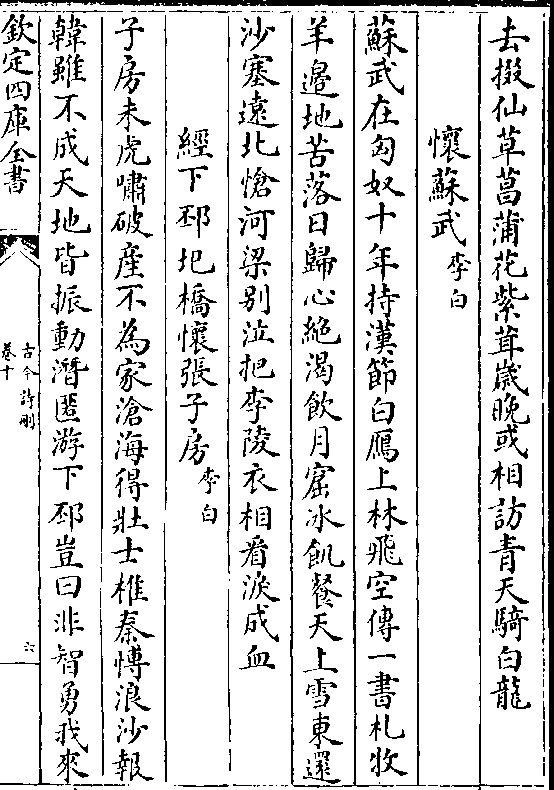 去掇仙草菖蒲花紫茸嵗晚或相訪青天騎白龍
懷蘇武李白
蘇武在匈奴十年持漢節白鴈上林飛空傳一書札牧
羊邉地苦落日歸心絶渴飲月窟冰飢餐天上雪東還
沙塞逺北愴河梁别泣把李陵衣相看淚成血
經下邳圯橋懷張子房李白
子房未虎嘯破産不為家滄海得壯士椎秦博浪沙報
韓雖不成天地皆振動潛匿游下邳豈曰非智勇我來
欽定四庫全書
古今詩刪
卷十
六